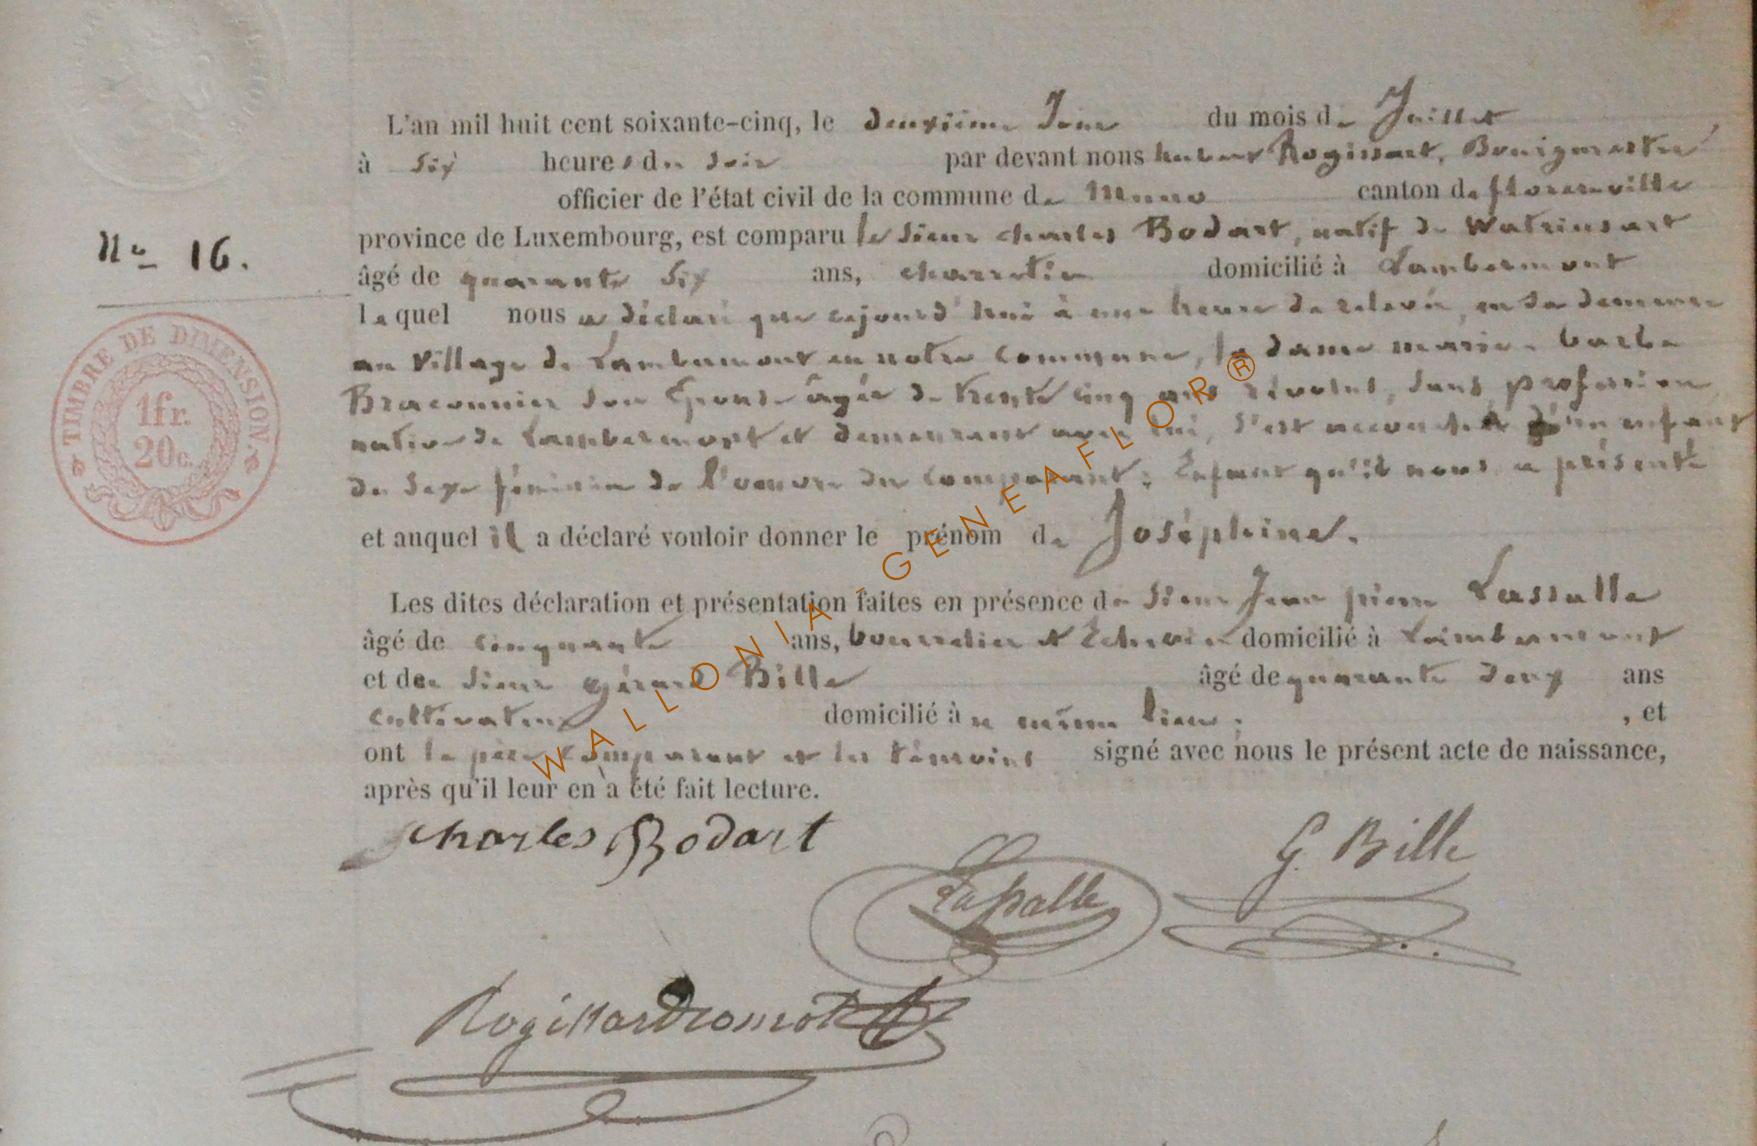 L'an mil huit cent soixante-cinq, le deuxième Jour du mois de Juillet
à Six heures du Soir par devant nous hubert Rogissart, Bourgmestre
officier de l'état civil de la commune de Muno canton de florenville
N° 16.
province de Luxembourg, est comparu le Sieur charles Bodart, natif de Watrinsart
âgé de quarante Six ans, charretier domicilié à Lambermont
lequel nous a déclaré que cejourd'hui à une heure de relevée, en Sa demeure
au Village de Lambermont en notre Commune, la dame marie barbe
Braconnier Son Epouse âgée de trente cinq ans révolus, Sans profession
native de Lambermont et demeurant avec lui, S'est accouchée d'un enfant
du Sexe féminin de l'oeuvre du Comparant; Enfant qu'il nous a présenté
TIMBRE DE DIMENSION.
1fr.
20c.
et auquel il a déclaré vouloir donner le prénom de Joséphine.
Les dites déclaration et présentation faites en présence de Sieur Jean pierre Lassalle
âgé de cinquante ans, bourrelier et Echevin domicilié à Lambermont
et de Sieur gérard Bille âgé de quarante deux ans
cultivateur domicilié à ce même lieu; , et
ont le père Comparant et les témoins signé avec nous le présent acte de naissance,
après qu'il leur en à été fait lecture.
charles Bodart
Lassalle
G. Bille
WALLONIA-GENEAFLOR®